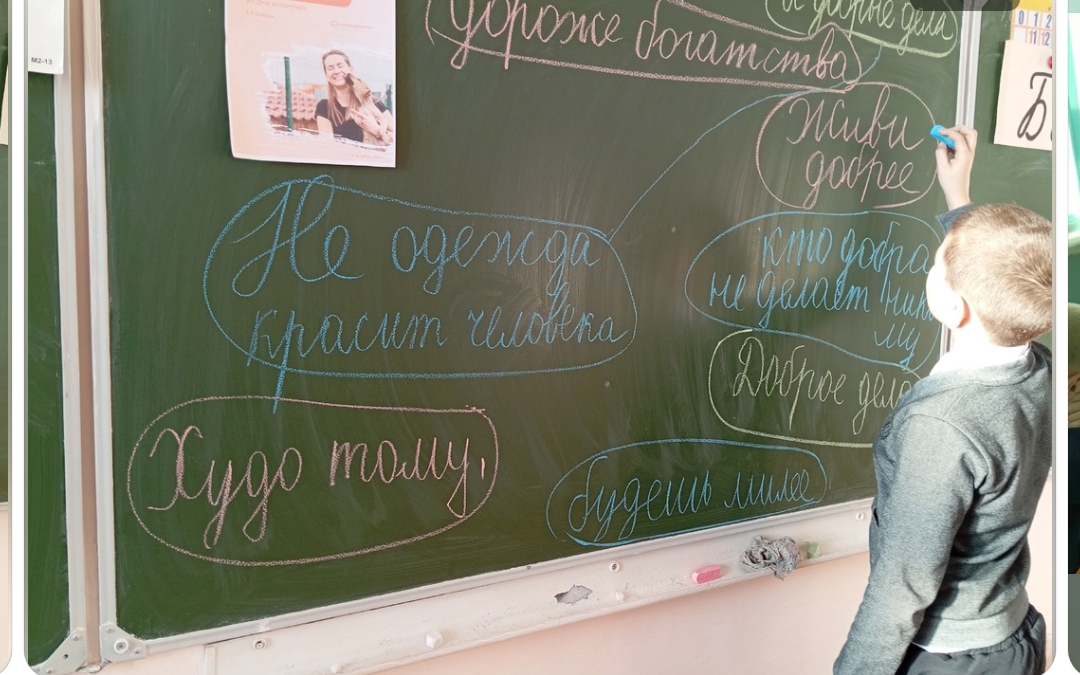 дороже богатства
добрые дела
Живи
добрее
Не одежда
красит человека
кто добра
не делает нико
му
Доброе дело
Худо тому,
будешь милее
М2-13
0 1 2
11 12
Б